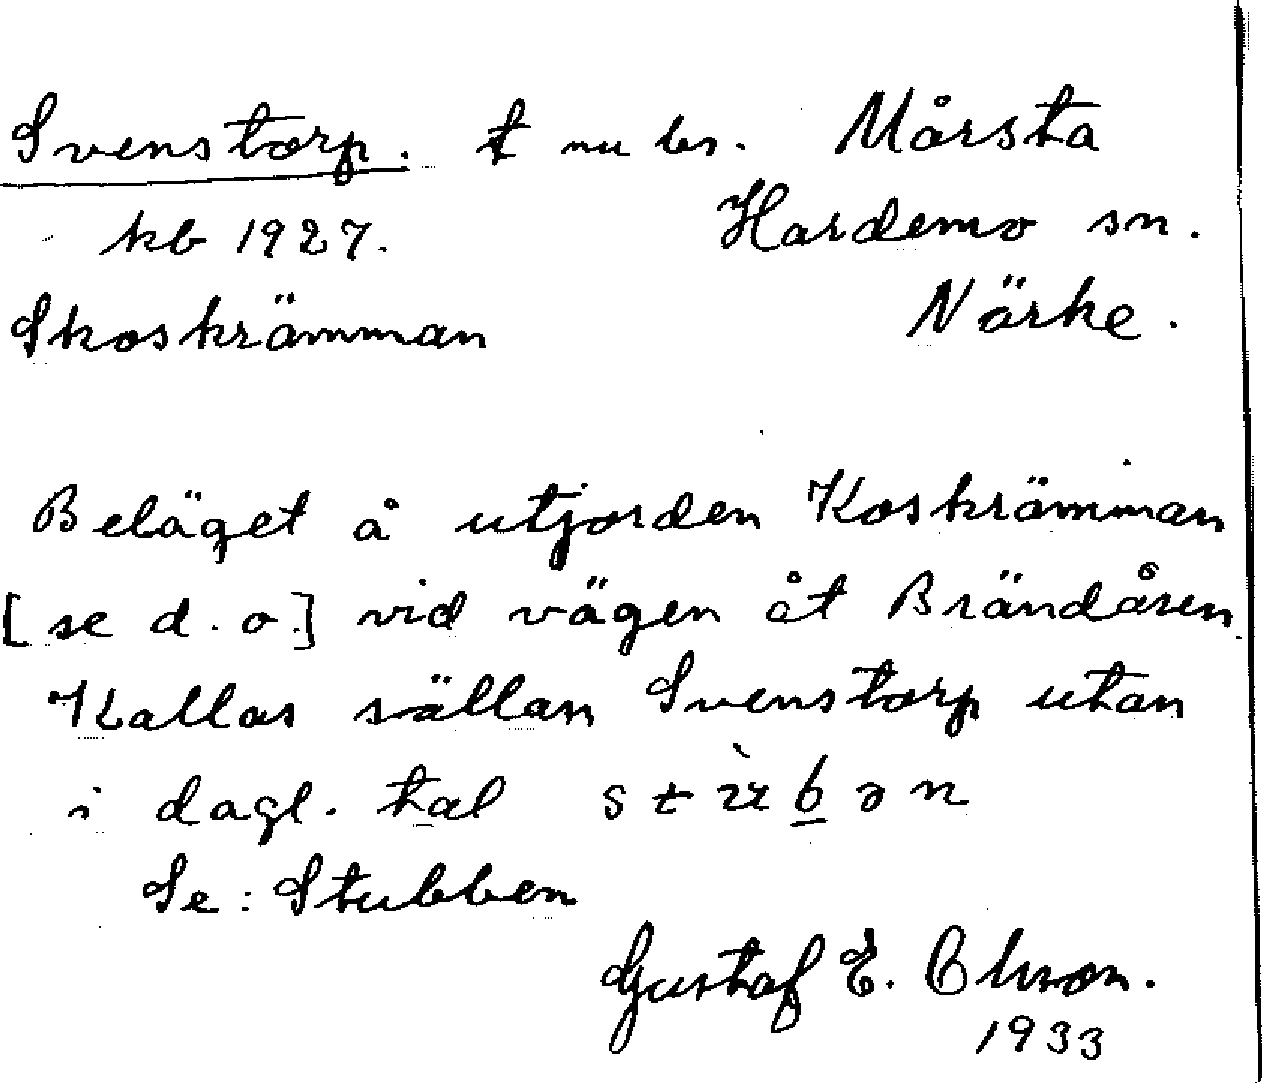 Svenstorp. t nu les. Mårsta
kb 1927. Hardemo sn.
Skoskrämman Närke.
Beläget å utjorden Koskrämman
[se d.o.] vid vägen åt Brändåsen
Kallas sällan Svenstorp utan
i dagl. tal
Se: Stubben
Gustaf E. Olsson.
1933